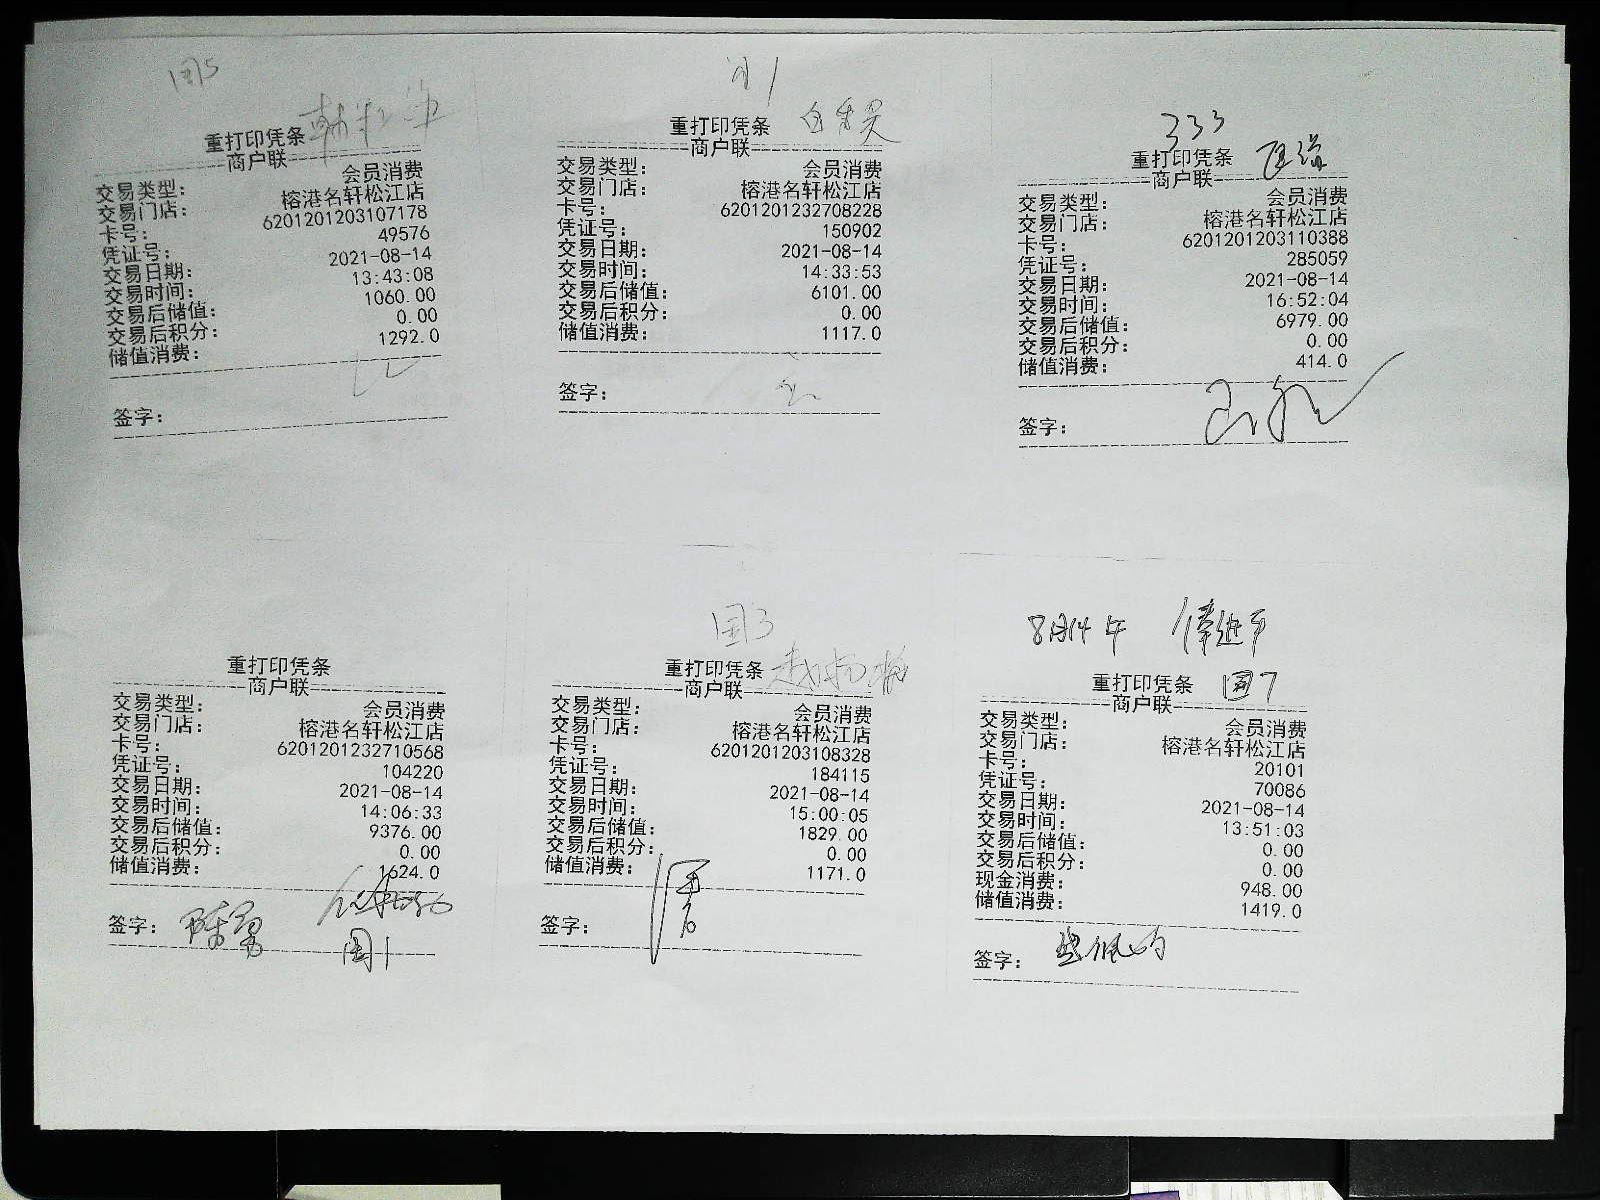 国5
重打印凭条
商户联
交易类型: 会员消费
交易门店: 榕港名轩松江店
卡号: 6201201203107178
凭证号: 49576
交易日期: 2021-08-14
交易时间: 13:43:08
交易后储值: 1060.00
交易后积分: 0.00
储值消费: 1292.0
签字:
重打印凭条
商户联
交易类型: 会员消费
交易门店: 榕港名轩松江店
卡号: 6201201232708228
凭证号: 150902
交易日期: 2021-08-14
交易时间: 14:33:53
交易后储值: 6101.00
交易后积分: 0.00
储值消费: 1117.0
签字:
333
重打印凭条
商户联
交易类型: 会员消费
交易门店: 榕港名轩松江店
卡号: 6201201203110388
凭证号: 285059
交易日期: 2021-08-14
交易时间: 16:52:04
交易后储值: 6979.00
交易后积分: 0.00
储值消费: 414.0
签字:
重打印凭条
商户联
交易类型: 会员消费
交易门店: 榕港名轩松江店
卡号: 6201201232710568
凭证号: 104220
交易日期: 2021-08-14
交易时间: 14:06:33
交易后储值: 9376.00
交易后积分: 0.00
储值消费: 1624.0
签字:
国1
国3
重打印凭条
商户联
交易类型: 会员消费
交易门店: 榕港名轩松江店
卡号: 6201201203108328
凭证号: 184115
交易日期: 2021-08-14
交易时间: 15:00:05
交易后储值: 1829.00
交易后积分: 0.00
储值消费: 1171.0
签字:
8月14 午
重打印凭条 国7
商户联
交易类型: 会员消费
交易门店: 榕港名轩松江店
卡号: 20101
凭证号: 70086
交易日期: 2021-08-14
交易时间: 13:51:03
交易后储值: 0.00
交易后积分: 0.00
现金消费: 948.00
储值消费: 1419.0
签字: